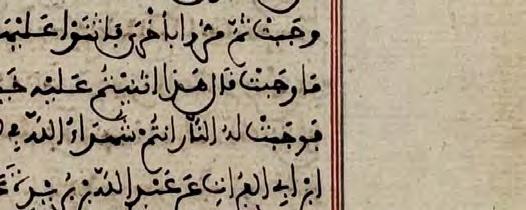 وجبت ثم مروا بأخرى فاثنوا عليها
ما وجبت قال هذا اثنيتم عليه خي
فوجبت له النار انتم شهداء الله في
ابن ابي الفرات عن عبد الله بن بريدة